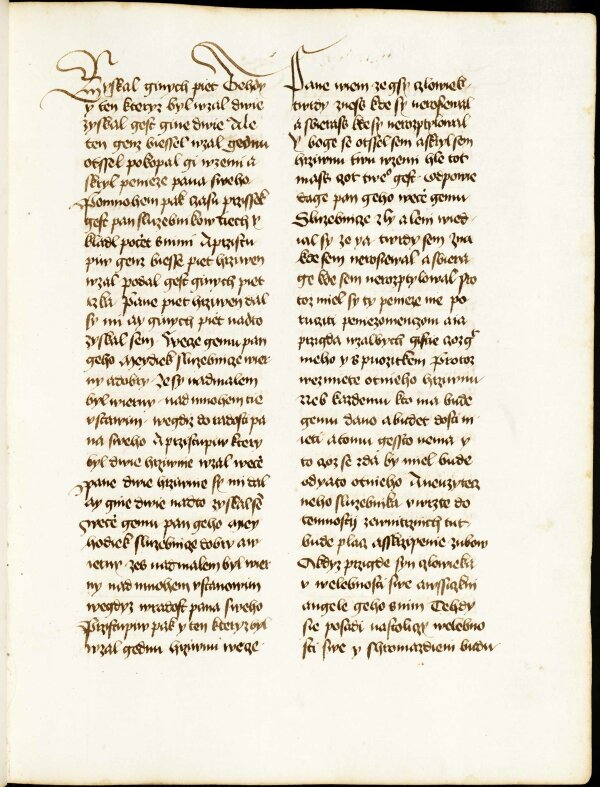 Zyskal ginych piet Tehdy
y ten kteryz byl wzal dwie
zyskal gest gine dwie Ale
ten genz biesse wzal gednu
otssel pokopal gi w zemi a
skryl penieze pana sweho
Po mnohem pak czasu przissel
gest pan sluzebnikow tiech y
kladl pocet s nimi A przistu
piw genz biesse piet hrziwen
wzal podal gest ginych piet
rzka Pane piet hrziwen dal
sy mi ay ginych piet nadto
zyskal sem Wece gemu pan
geho Aey diek sluzebnice wier
ny a dobry ze sy nad malem
byl wierny nad mnohem tie
vstawim wegdiz do radosti pa
na sweho A przistupiw ktery
byl dwie hrziwnie wzal wece
Pane dwie hrziwnie sy mi dal
ay gine dwie nadto zyskal sem
Wece gemu pan geho Aey
ho diek sluzebnice dobry a w
ierny zes nad malem byl wier
ny nad mnohem vstanowim
wegdyz w radost pana sweho
Przistupiw pak y ten kteryz byl
wzal gednu hrziwnu wece
Pane wiem ze gsy czlowiek
twrdy znes kde sy nerosiewal
a sbieras kde sy nerozptylowal
Y boge se otssel sem a skryl sem
hrziwnu twu w zemi hle tot
mass coz tweho gest Odpowe
dage pan geho wece gemu
Sluzebnice zly a leni wied
ial sy ze ya twrdy sem zna
kde sem nerosiewal a sbiera
ge kde sem nerozptylowal Pro
toz miel sy ty penieze me po
ruciti peniezomenczom a ia
przigda wzal bych giste coz gest
meho y s puozitkem Protoz
wezmiete ot nieho hrziwnu
Neb kazdemu kto ma bude
gemu dano a budet dosti m
ieti a tomu gessto nema y
to coz se zda by miel bude
odyato ot nieho A neuzytecz
neho sluzebnika wrzte do
temnostij zewnitrznich tut
bude placz a sskrzipenie zubow
A kdyz przigde syn czlowieka
v welebnosti swe a wssiczkni
angele geho s nim Tehdy
sie posadi na stolicy welebno
sti swe y shromazdieni budu